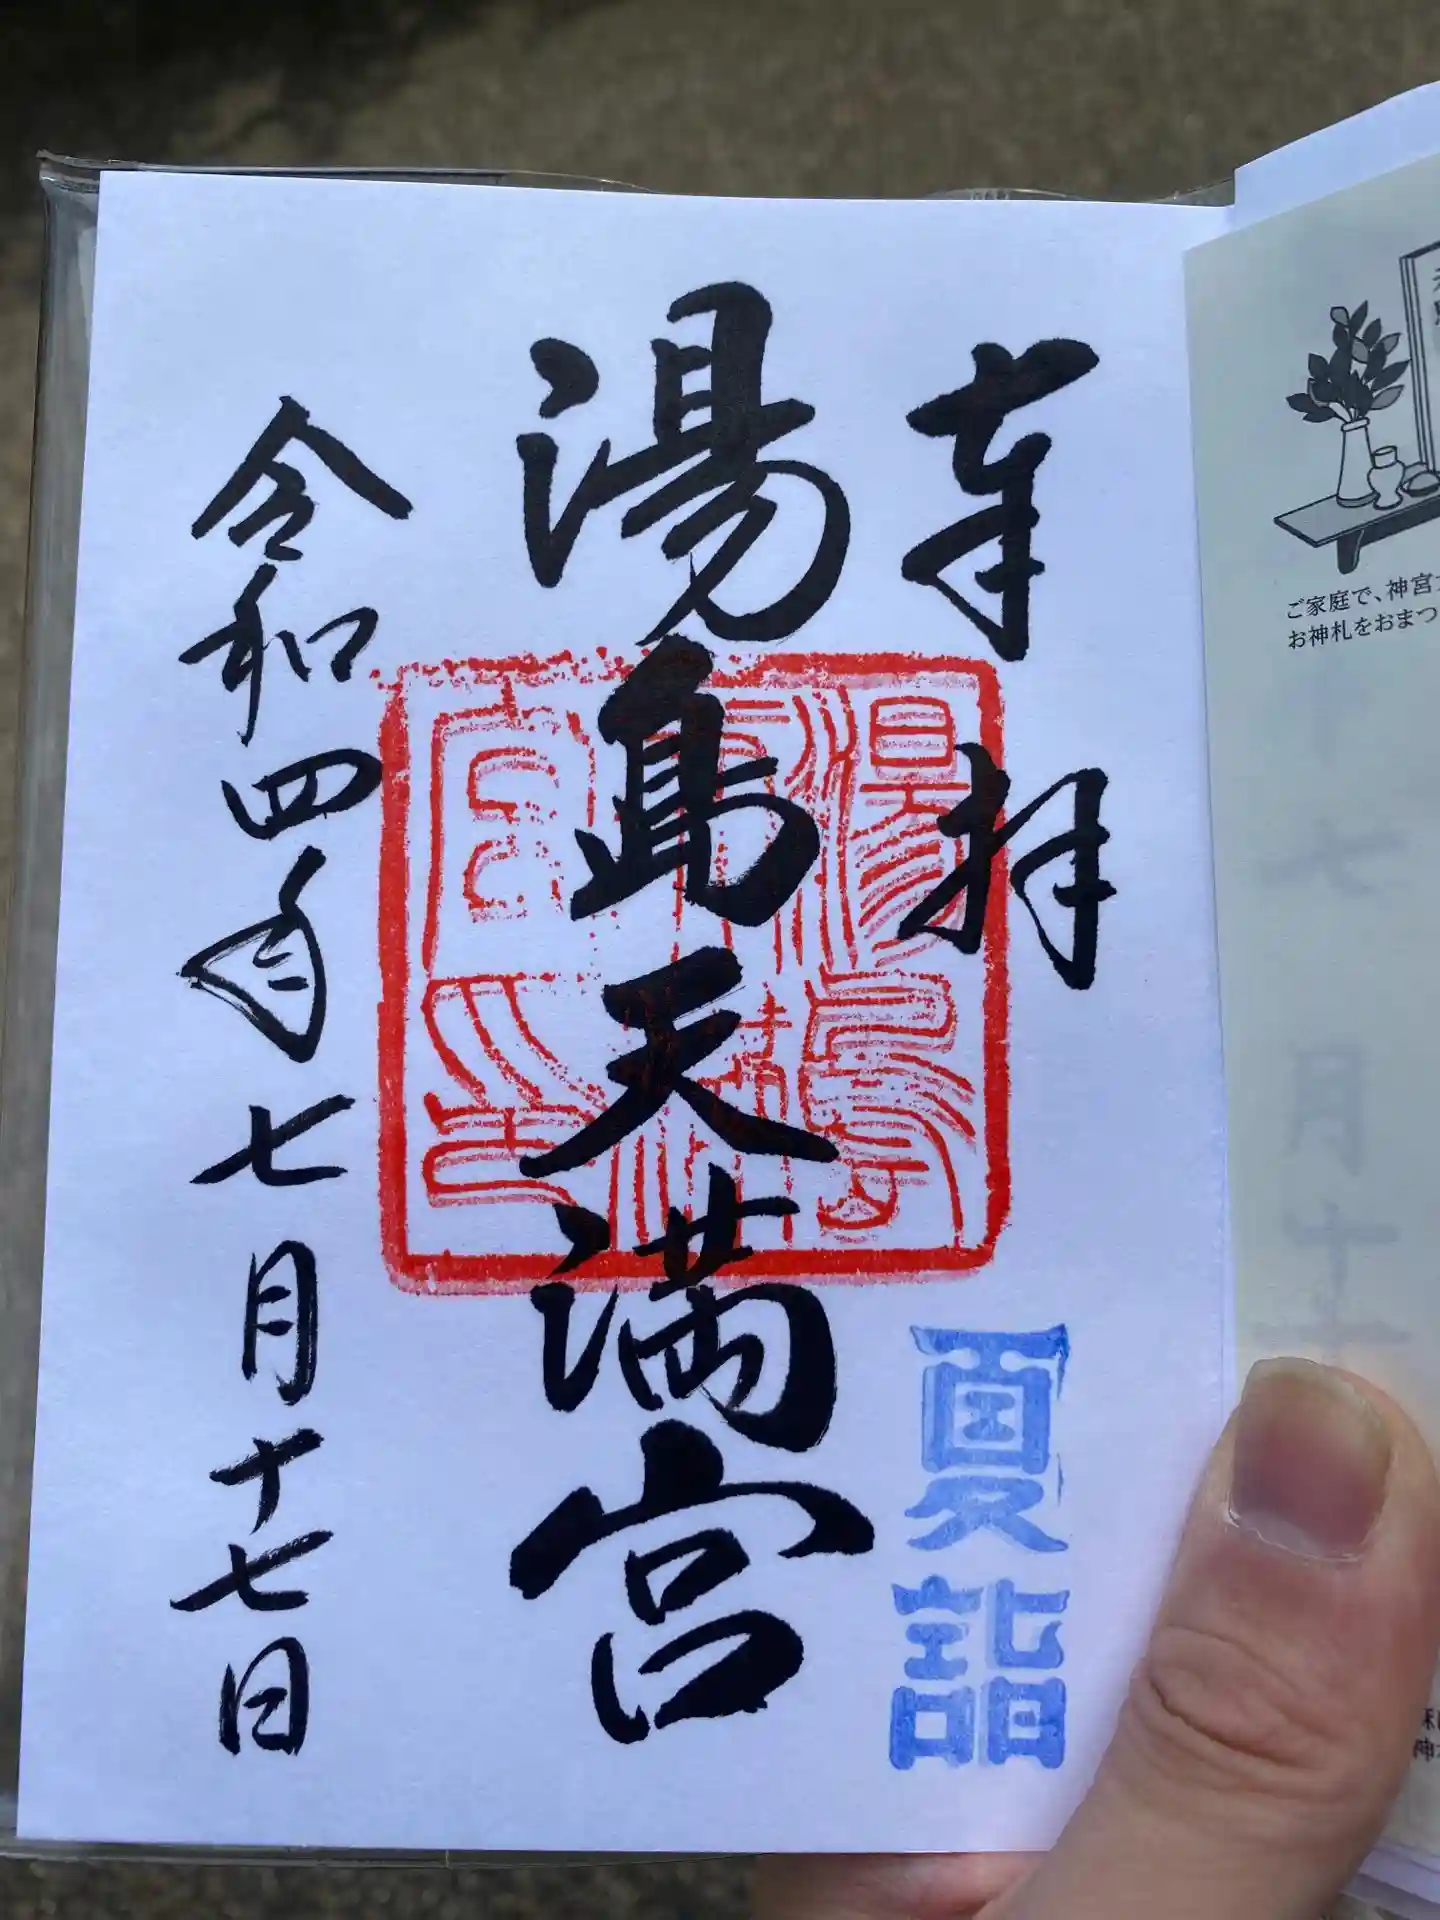 奉拝
湯島天満宮
夏詣
令和四年七月十七日
ご家庭で、神宮
お神札をおまつ